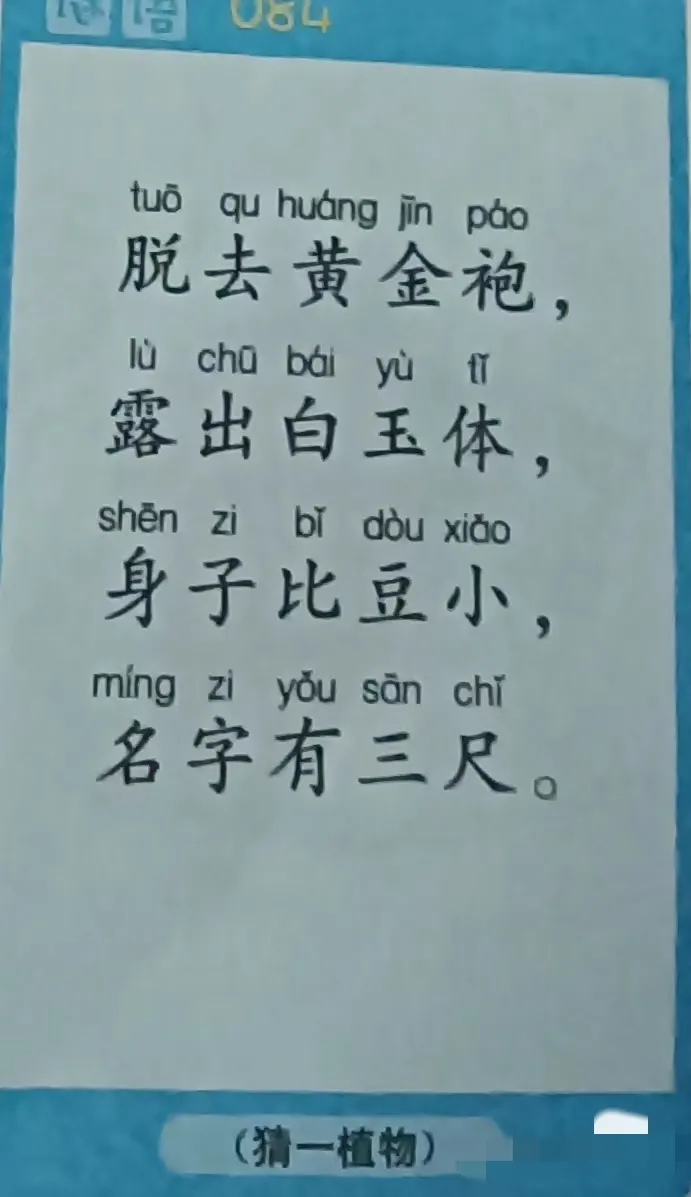 谜语 084
tuō qu huáng jīn páo
脱去黄金袍，
lù chū bái yù tǐ
露出白玉体，
shēn zi bǐ dòu xiǎo
身子比豆小，
míng zi yǒu sān chǐ
名字有三尺。
（猜一植物）